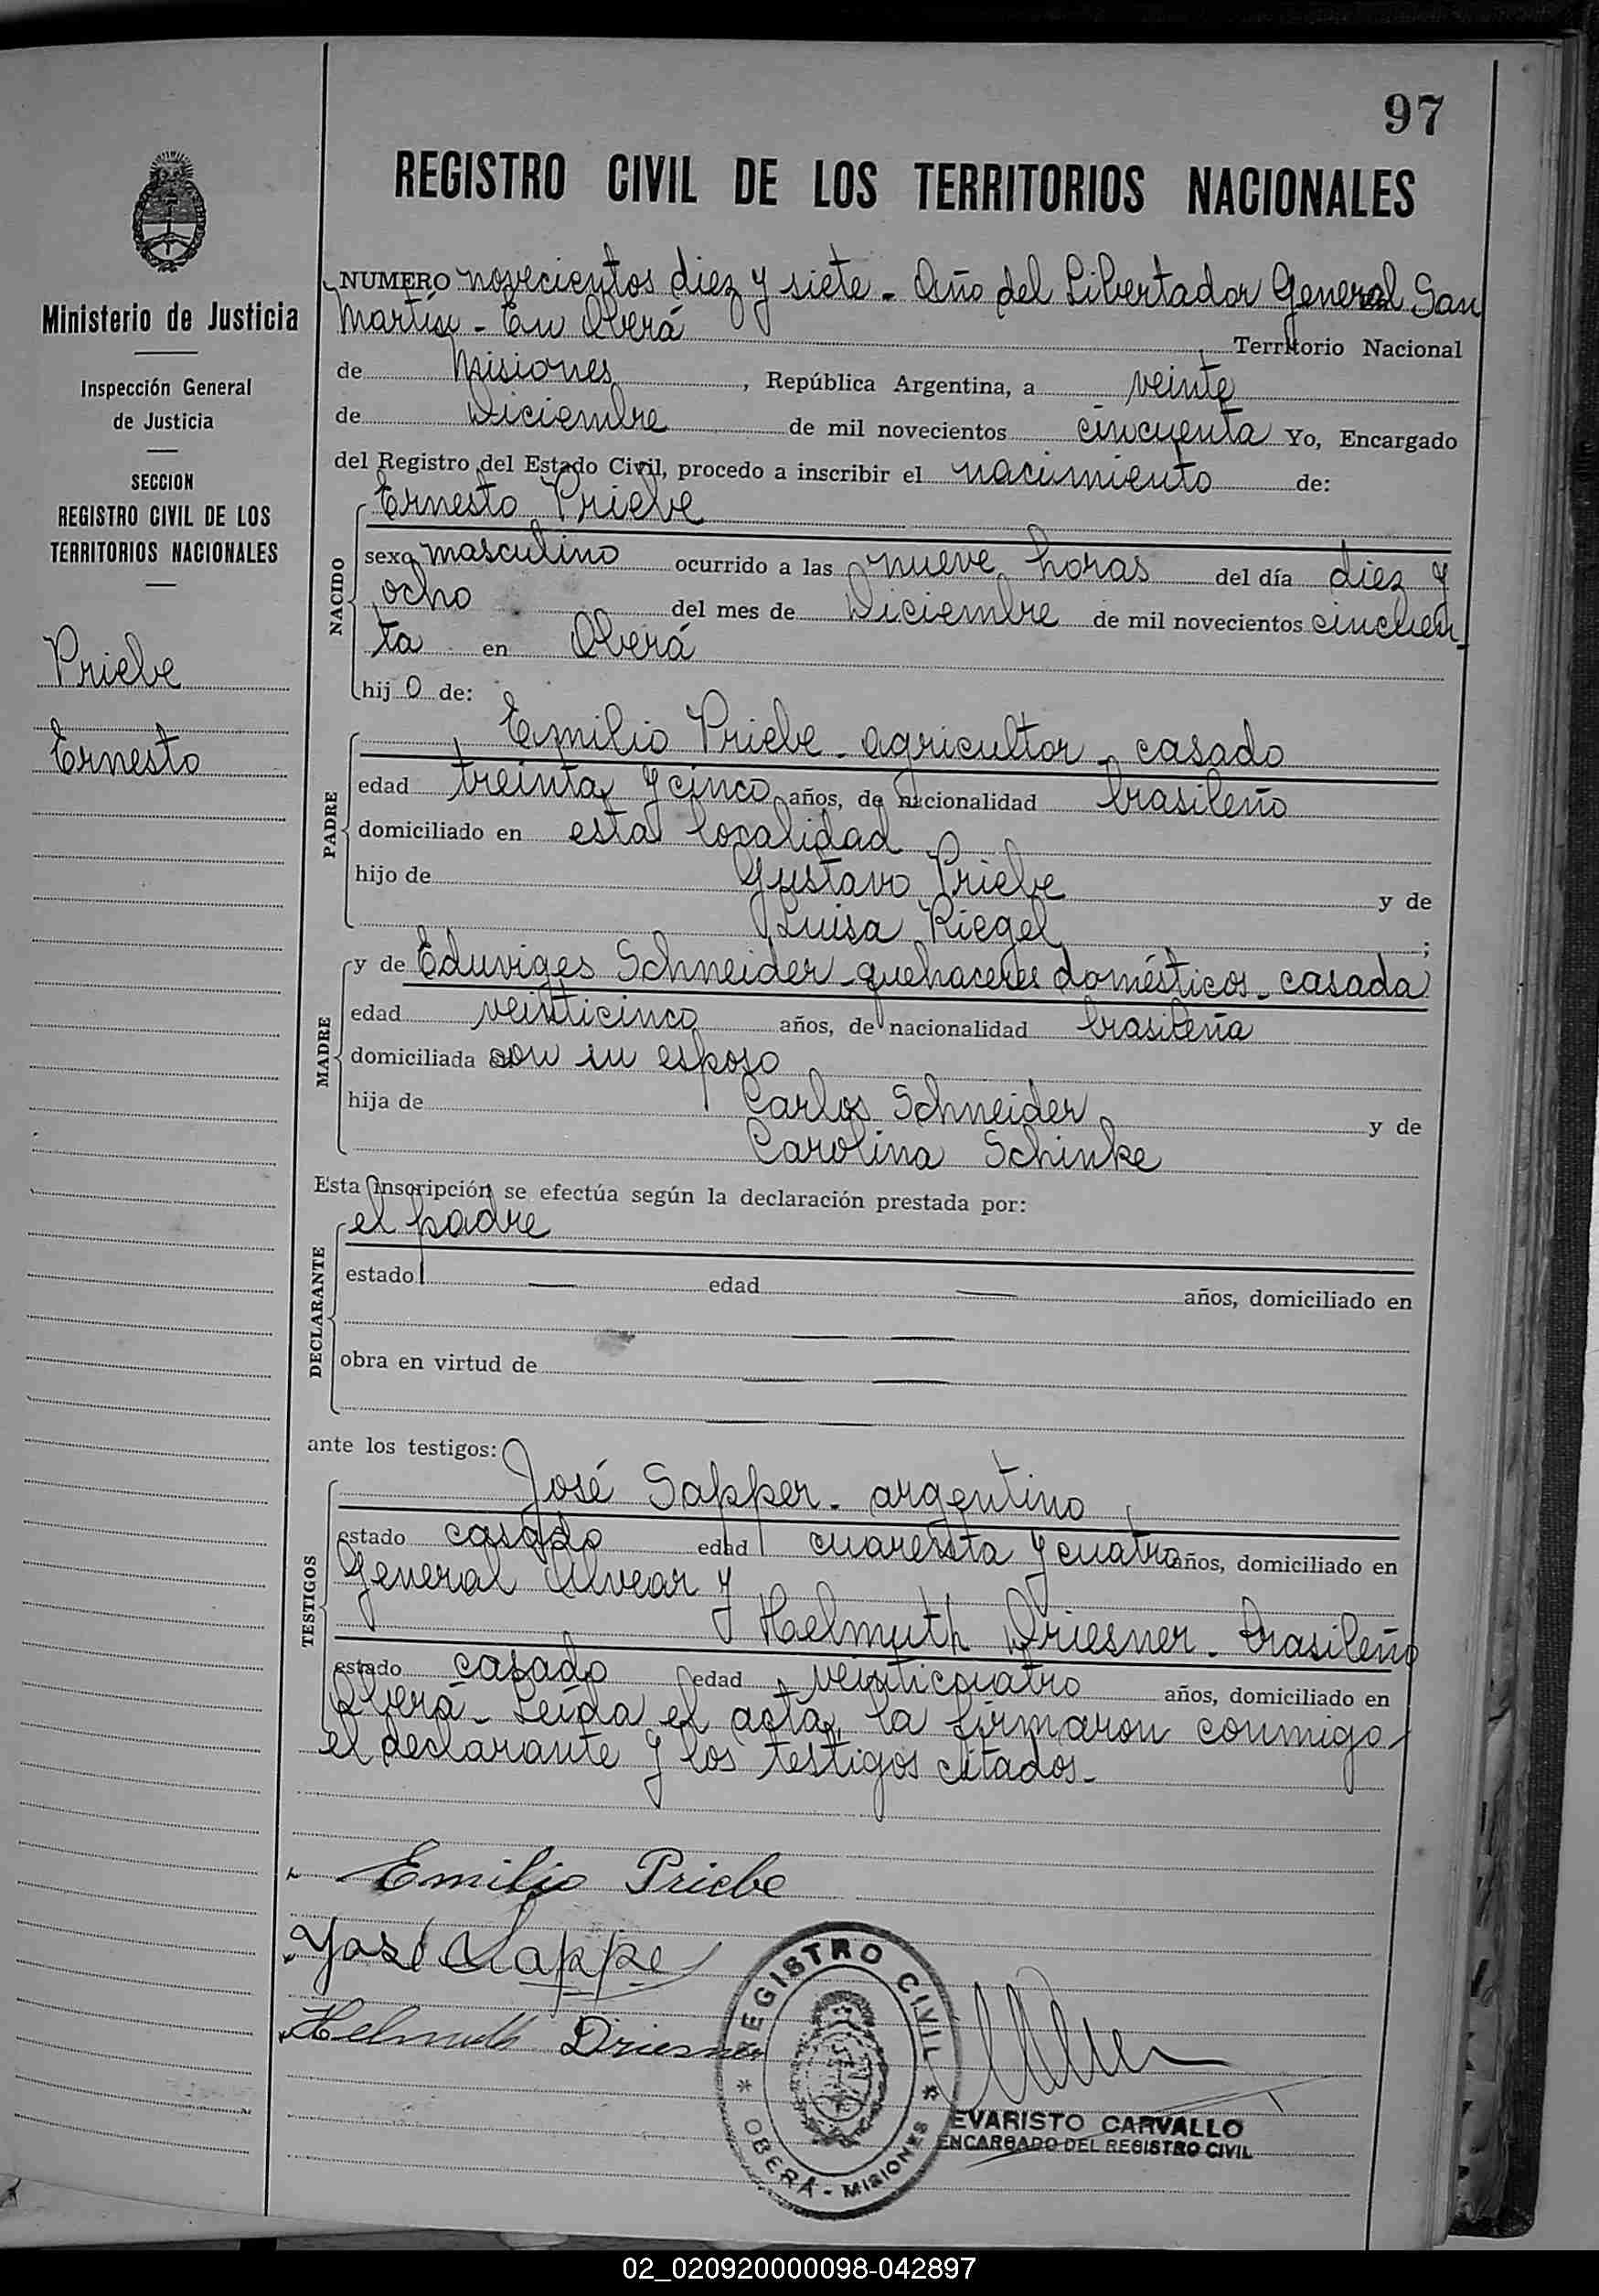 97
REGISTRO CIVIL DE LOS TERRITORIOS NACIONALES
Ministerio de Justicia
Inspección General
de Justicia
SECCION
REGISTRO CIVIL DE LOS
TERRITORIOS NACIONALES
Priebe
Ernesto
NUMERO novecientos diez y siete - Año del Libertador General San
Martín - En Oberá Territorio Nacional
de Misiones, República Argentina, a veinte
de Diciembre de mil novecientos cincuenta Yo, Encargado
del Registro del Estado Civil, procedo a inscribir el nacimiento de:
NACIDO
Ernesto Priebe
sexo masculino ocurrido a las nueve horas del día diez y
ocho del mes de Diciembre de mil novecientos cincuen-
ta en Oberá
hijo de:
PADRE
Emilio Priebe - agricultor - casado
edad treinta y cinco años, de nacionalidad brasileño
domiciliado en esta localidad
hijo de Gustavo Priebe y de
Luisa Riegel;
MADRE
y de Eduviges Schneider - quehaceres domésticos - casada
edad veinticinco años, de nacionalidad brasileña
domiciliada con su esposo
hija de Carlos Schneider y de
Carolina Schinke
Esta inscripción se efectúa según la declaración prestada por:
DECLARANTE
el padre
estado — edad — años, domiciliado en
— —
obra en virtud de — —
— —
ante los testigos:
TESTIGOS
José Sapper - argentino
estado casado edad cuarenta y cuatro años, domiciliado en
General Alvear y
Helmuth Driesner - brasileño
estado casado edad veinticuatro años, domiciliado en
Oberá - Leída el acta, la firmaron conmigo
el declarante y los testigos citados-
Emilio Priebe
José Sappe
Helmuth Driesner
REGISTRO CIVIL
* OBERÁ - MISIONES *
EVARISTO CARVALLO
ENCARGADO DEL REGISTRO CIVIL
02_020920000098-042897